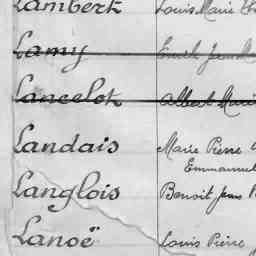 Lambert Louis Marie
Lamy Emile
Lancelot Albert Marie
Landais Marie Pierre
Emmanuel
Langlois Benoit Jean
Lanoë Louis Pierre